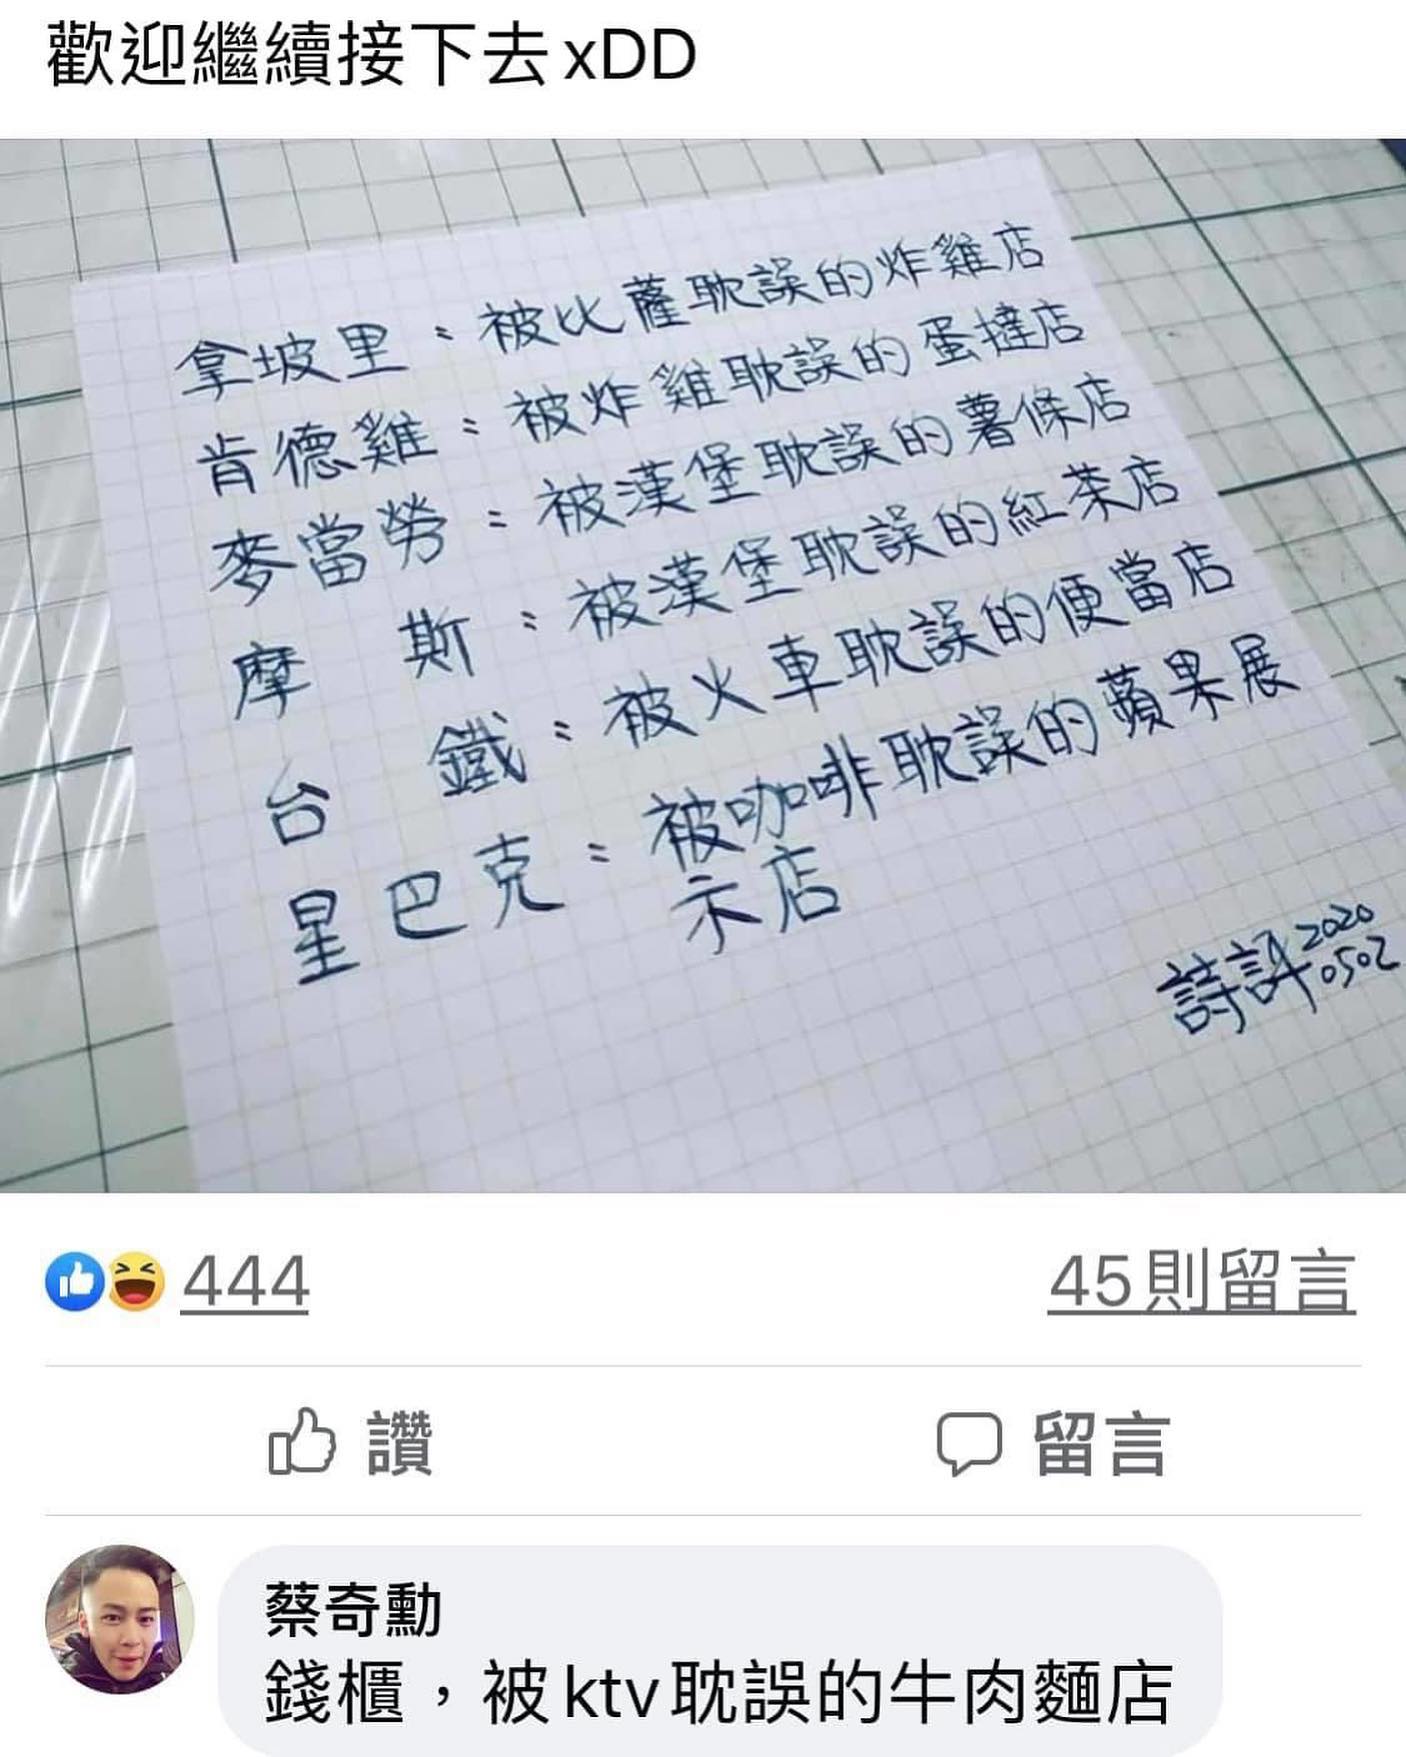 歡迎繼續接下去xDD
拿坡里：被比薩耽誤的炸雞店
肯德雞：被炸雞耽誤的蛋撻店
麥當勞：被漢堡耽誤的薯條店
摩斯：被漢堡耽誤的紅茶店
台鐵：被火車耽誤的便當店
星巴克：被咖啡耽誤的蘋果展
示店
2020
0502
444
45則留言
讚
留言
蔡奇勳
錢櫃，被ktv耽誤的牛肉麵店